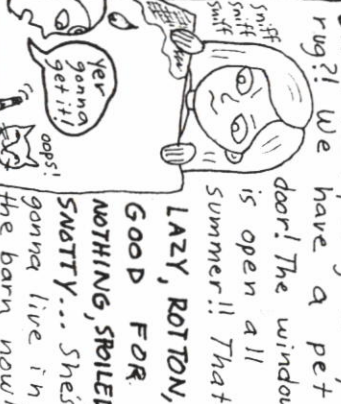 rug?! We have a pet
door! The window
is open all
summer!! That
LAZY, ROTTON,
GOOD FOR
NOTHING, SPOILED
SNOTTY... She's
gonna live in
the barn now!
sniff
sniff
sniff
yer
gonna
get it!
oops!